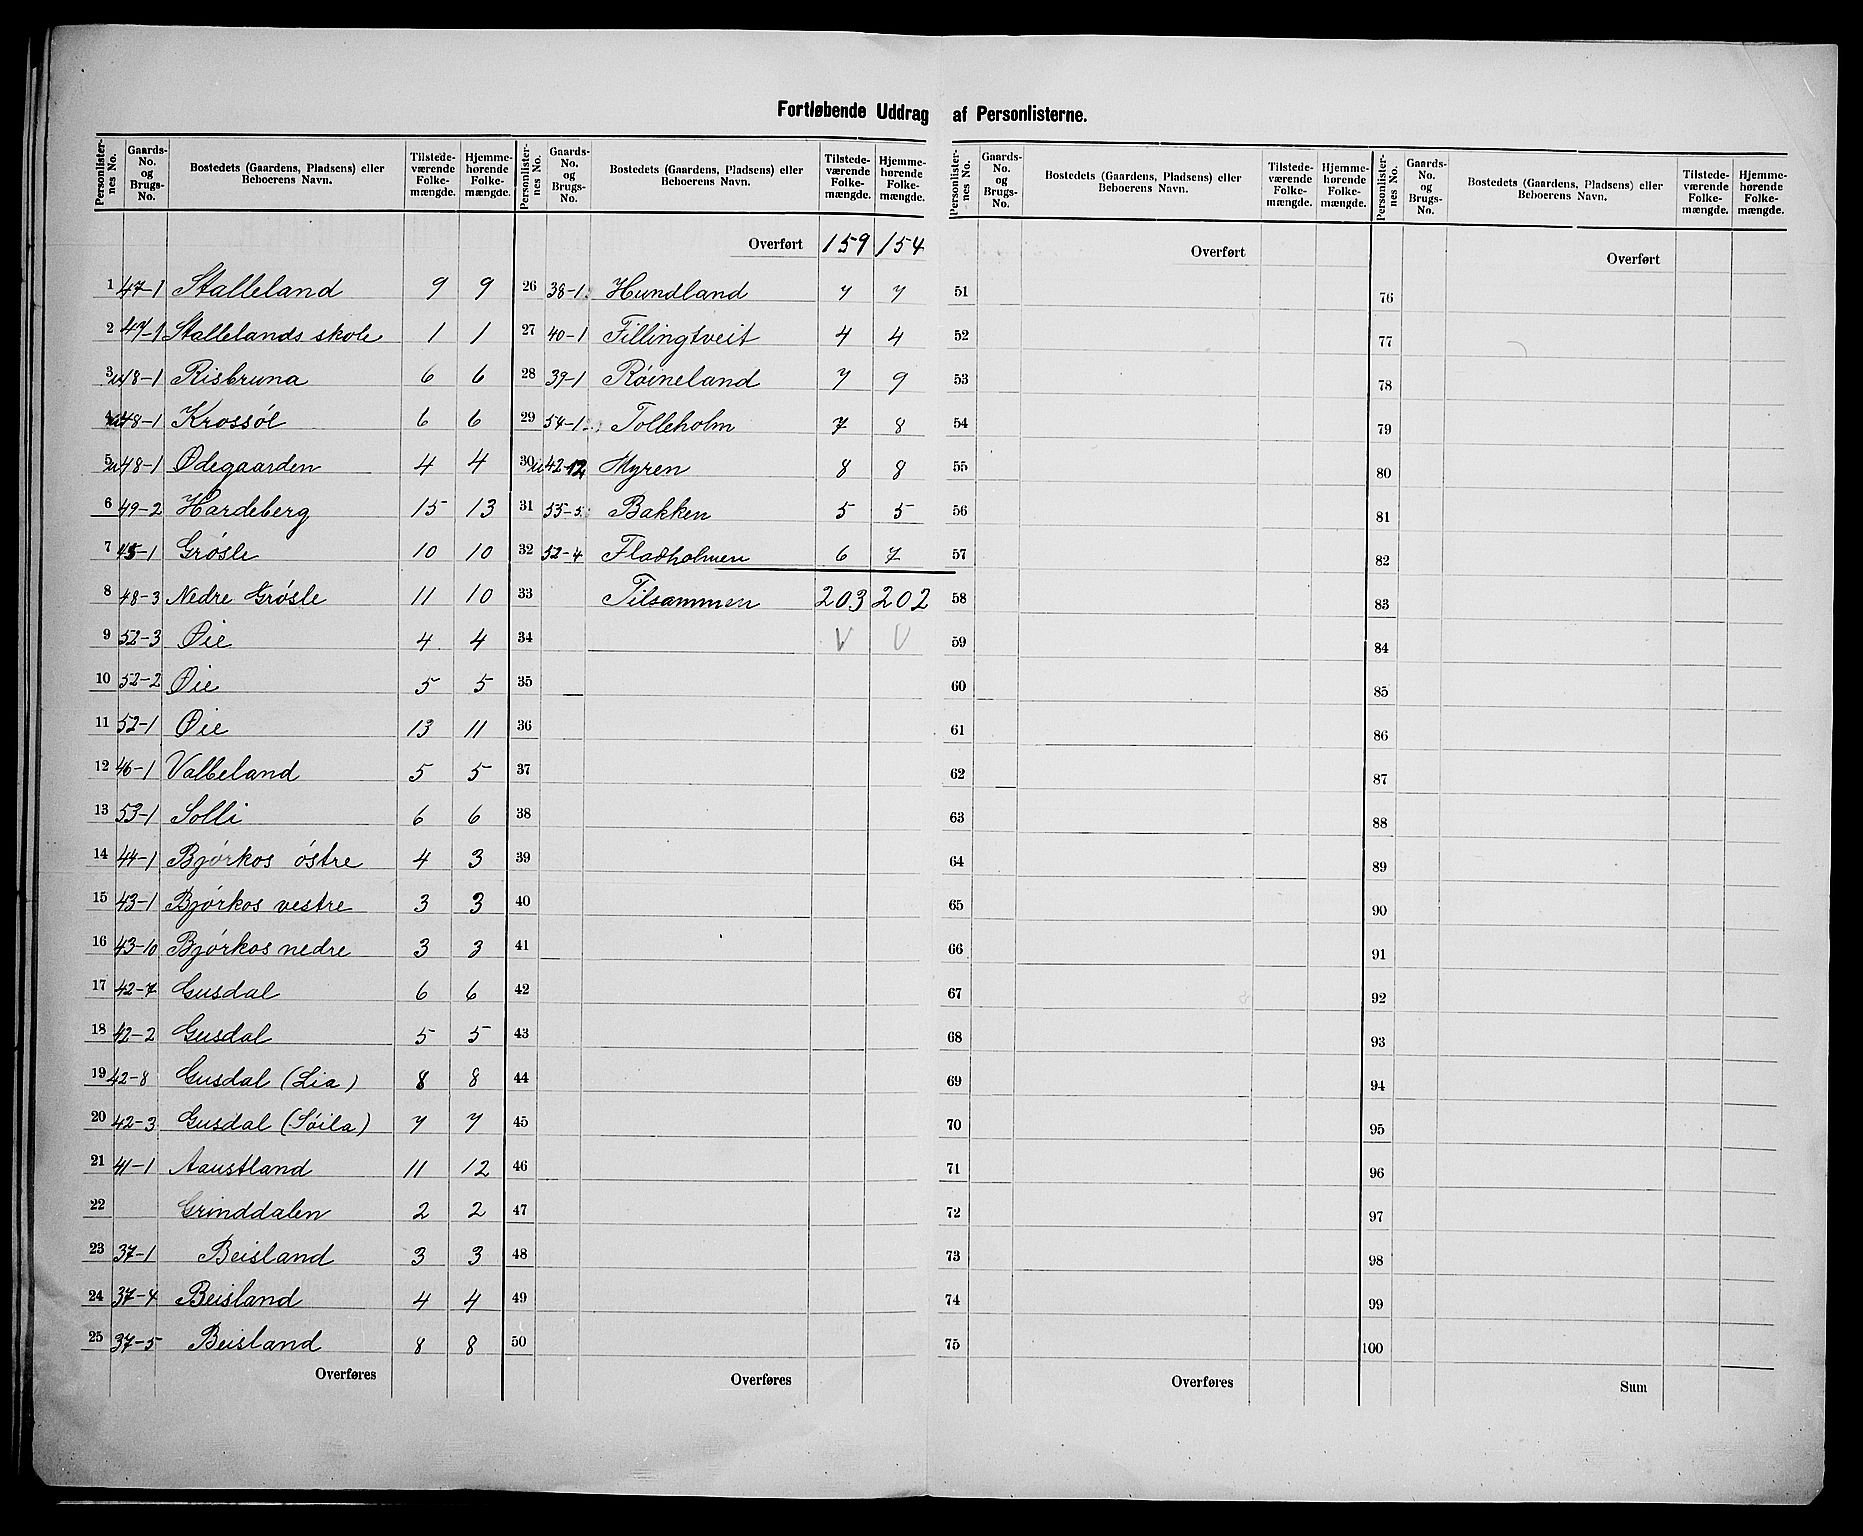 Fortløbende Uddrag af Personlisterne.
Personlister-nes No. Gaards-No. og Brugs-No. Bostedets (Gaardens, Pladsens) eller Beboerens Navn. Tilstede-værende Folke-mængde. Hjemme-hørende Folke-mængde.
1 47-1 Stalleland 9 9
2 47-1 Stallelands skole 1 1
3 48-1 Risbruna 6 6
4 48-1 Krossøl 6 6
5 48-1 Ødegaarden 4 4
6 49-2 Hardeberg 15 13
7 45-1 Grøsle 10 10
8 48-3 Nedre Grøsle 11 10
9 52-3 Øie 4 4
10 52-2 Øie 5 5
11 52-1 Øie 13 11
12 46-1 Valbeland 5 5
13 53-1 Solli 6 6
14 44-1 Bjørkos østre 4 3
15 43-1 Bjørkos vestre 3 3
16 43-10 Bjørkos nedre 3 3
17 42-7 Gusdal 6 6
18 42-2 Gusdal 5 5
19 42-8 Gusdal (Lia) 8 8
20 42-3 Gusdal (Søila) 7 7
21 41-1 Aaustland 11 12
22 Grinddalen 2 2
23 37-1 Beisland 3 3
24 37-4 Beisland 4 4
25 37-5 Beisland 8 8
Overføres
Personlister-nes No. Gaards-No. og Brugs-No. Bostedets (Gaardens, Pladsens) eller Beboerens Navn. Tilstede-værende Folke-mængde. Hjemme-hørende Folke-mængde.
Overført 159 154
26 38-1 Hundland 7 7
27 40-1 Fillingtveit 4 4
28 39-1 Røineland 7 9
29 54-1 Tolleholm 7 8
30 42-12 Myren 8 8
31 55-5 Bakken 5 5
32 52-4 Fladholmen 6 7
33 Tilsammen 203 202
34 V V
35
36
37
38
39
40
41
42
43
44
45
46
47
48
49
50
Overføres
Personlister-nes No. Gaards-No. og Brugs-No. Bostedets (Gaardens, Pladsens) eller Beboerens Navn. Tilstede-værende Folke-mængde. Hjemme-hørende Folke-mængde.
Overført
51
52
53
54
55
56
57
58
59
60
61
62
63
64
65
66
67
68
69
70
71
72
73
74
75
Overføres
Personlister-nes No. Gaards-No. og Brugs-No. Bostedets (Gaardens, Pladsens) eller Beboerens Navn. Tilstede-værende Folke-mængde. Hjemme-hørende Folke-mængde.
Overført
76
77
78
79
80
81
82
83
84
85
86
87
88
89
90
91
92
93
94
95
96
97
98
99
100
Sum